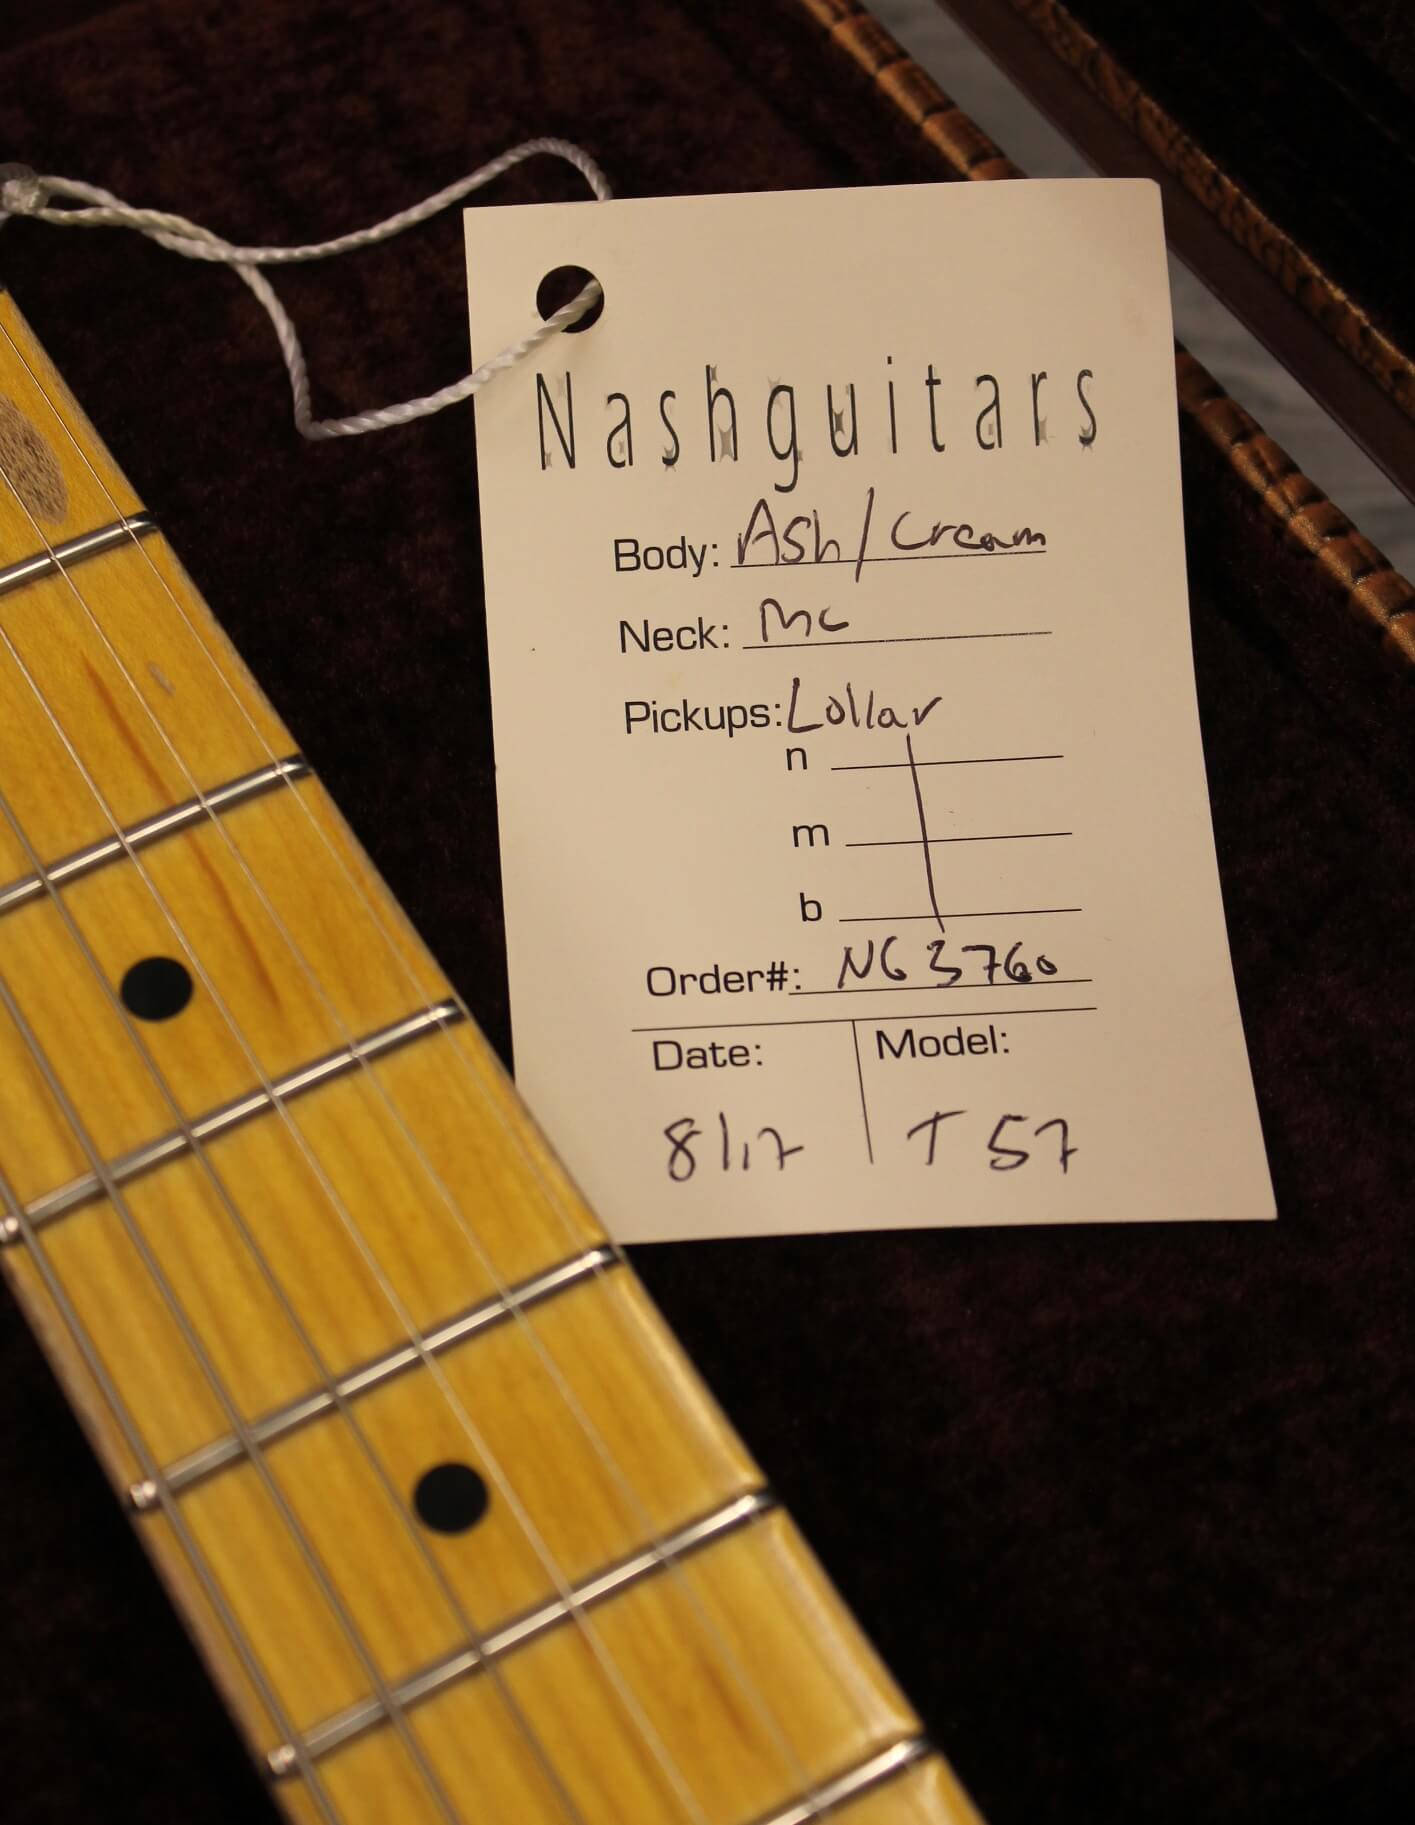 Nashguitars
Body: Ash/Cream
Neck: MC
Pickups: Lollar
n
m
b
Order#: NG 3760
Date: Model:
8/17 T 57